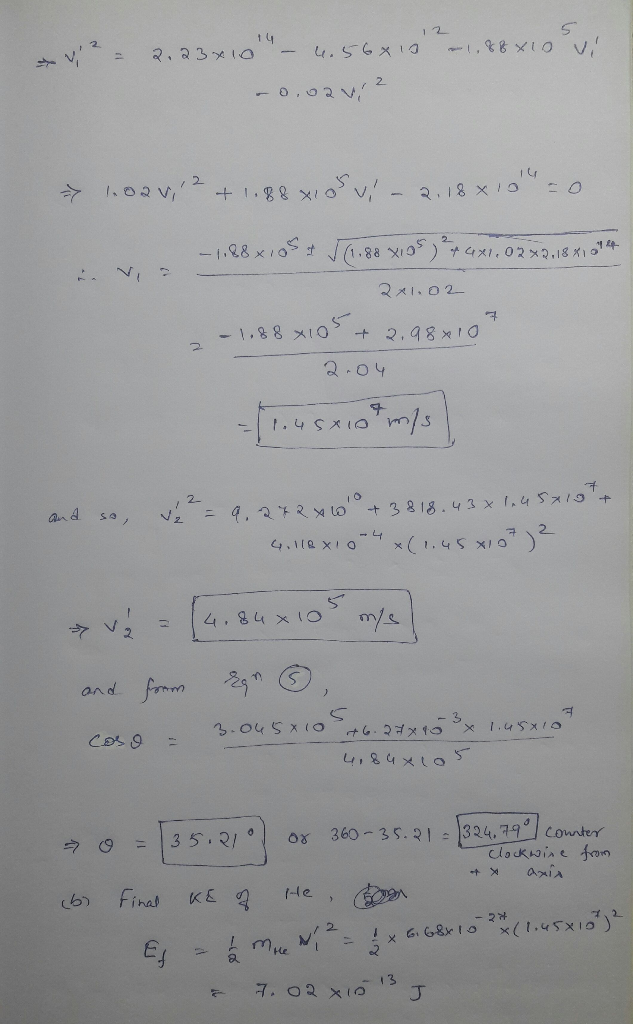 ⇒ v₁'² = 2.23×10¹⁴ − 4.56×10¹² − 1.88×10⁵ v₁'
− 0.02 v₁'²
⇒ 1.02 v₁'² + 1.88×10⁵ v₁' − 2.18×10¹⁴ = 0
∴ v₁ = −1.88×10⁵ ± √((1.88×10⁵)² + 4×1.02×2.18×10¹⁴)
2×1.02
= −1.88×10⁵ + 2.98×10⁷
2.04
= 1.45×10⁷ m/s
and so, v₂'² = 9.272×10¹⁰ + 3818.43×1.45×10⁷ +
4.118×10⁻⁴ ×(1.45×10⁷)²
⇒ v₂' = 4.84×10⁵ m/s
and from Eqn ⑤,
cosθ = 3.045×10⁵ + 6.27×10⁻³ × 1.45×10⁷
4.84×10⁵
⇒ θ = 35.21° or 360−35.21 = 324.79° counter
clockwise from
+x axis
(b) Final KE of He,
E_f = ½ m_He v₁'² = ½ × 6.68×10⁻²⁷ ×(1.45×10⁷)²
= 7.02×10⁻¹³ J